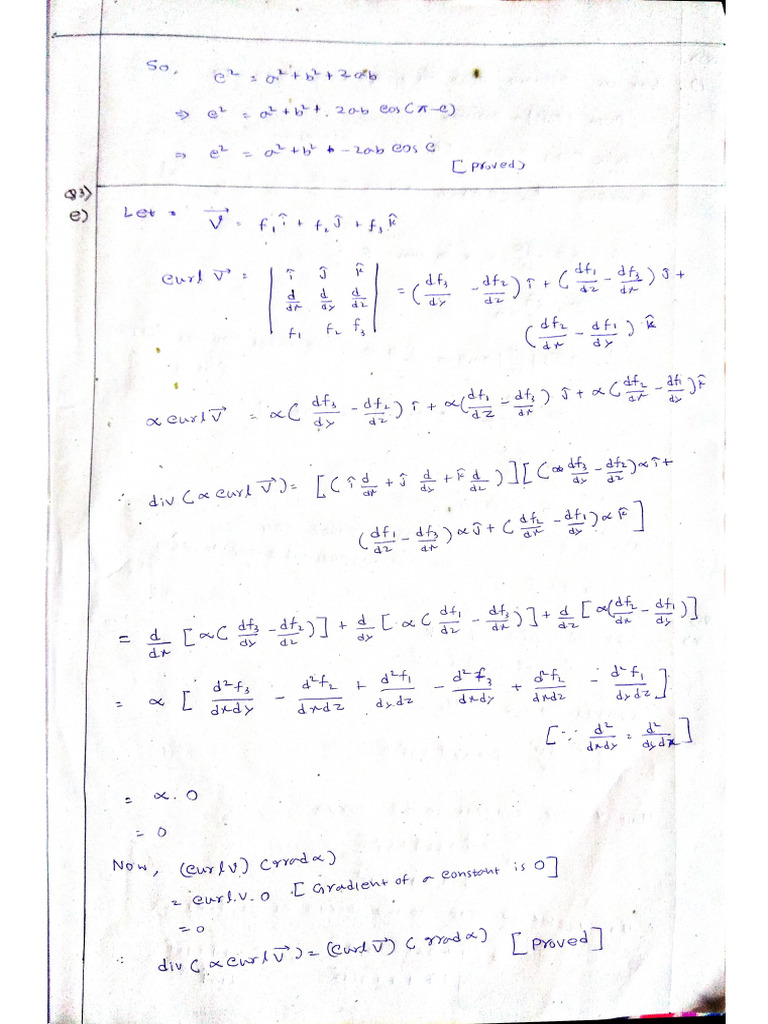 So, c² = a² + b² + 2ab
⇒ c² = a² + b² + . 2ab cos(π-c)
⇒ c² = a² + b² + -2ab cos c
[Proved)
Q3)
e) Let V⃗ = f₁î + f₂ĵ + f₃k̂
curl V⃗ = | î ĵ k̂ | = (df₃/dy - df₂/dz) î + (df₁/dz - df₃/dx) ĵ +
| d/dx d/dy d/dz |
| f₁ f₂ f₃ | (df₂/dx - df₁/dy) k̂
α curl V⃗ = α(df₃/dy - df₂/dz) î + α(df₁/dz - df₃/dx) ĵ + α(df₂/dx - df₁/dy) k̂
∴ div(α curl V⃗) = [(î d/dx + ĵ d/dy + k̂ d/dz)][(df₃/dy - df₂/dz) α î +
(df₁/dz - df₃/dx) α ĵ + (df₂/dx - df₁/dy) α k̂]
= d/dx [α(df₃/dy - df₂/dz)] + d/dy [α(df₁/dz - df₃/dx)] + d/dz [α(df₂/dx - df₁/dy)]
= α [d²f₃/dxdy - d²f₂/dxdz + d²f₁/dydz - d²f₃/dxdy + d²f₂/dxdz - d²f₁/dydz]
[∵ d²/dxdy = d²/dydx]
= α . 0
= 0
Now, (curl v) (grad α)
= curl.v.0 [Gradient of a constant is 0]
= 0
∴ div(α curl V⃗) = (curl V⃗) (grad α) [Proved]